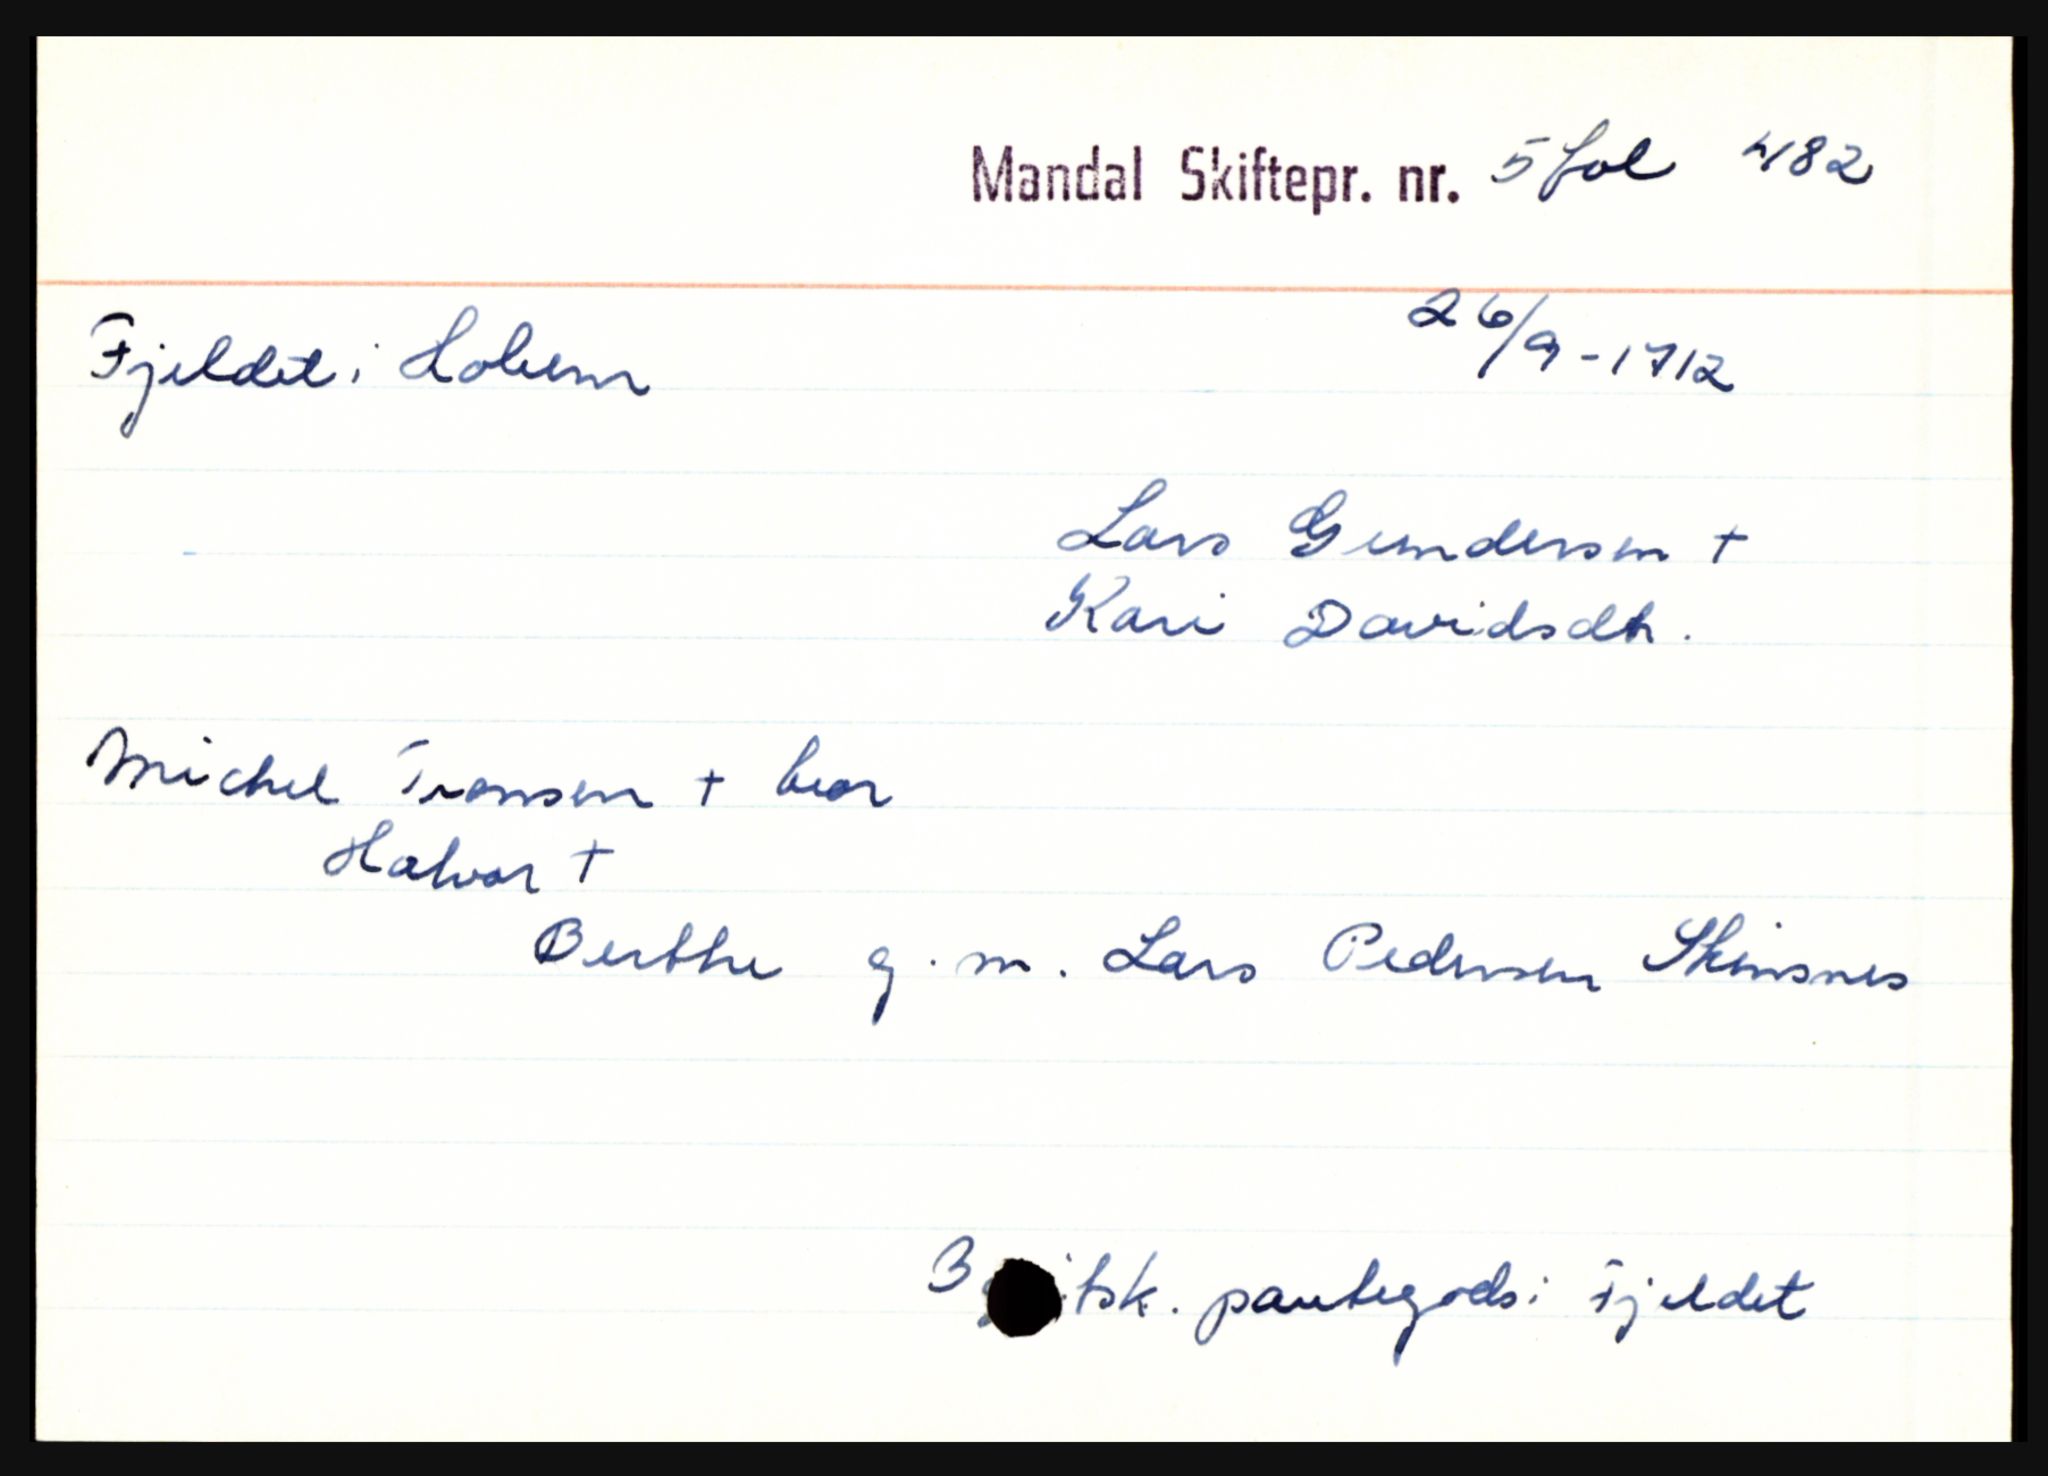 Mandal Skiftepr. nr. 5 fol 482
Fjeldet i Holum 26/9-1712
Lars Gundersen +
Kari Davidsdtr.
Michel Tronsen + bror
Halvor +
Berthe g. m. Lars Pedersen Skinsnes
B itsk. pantegods i Fjeldet